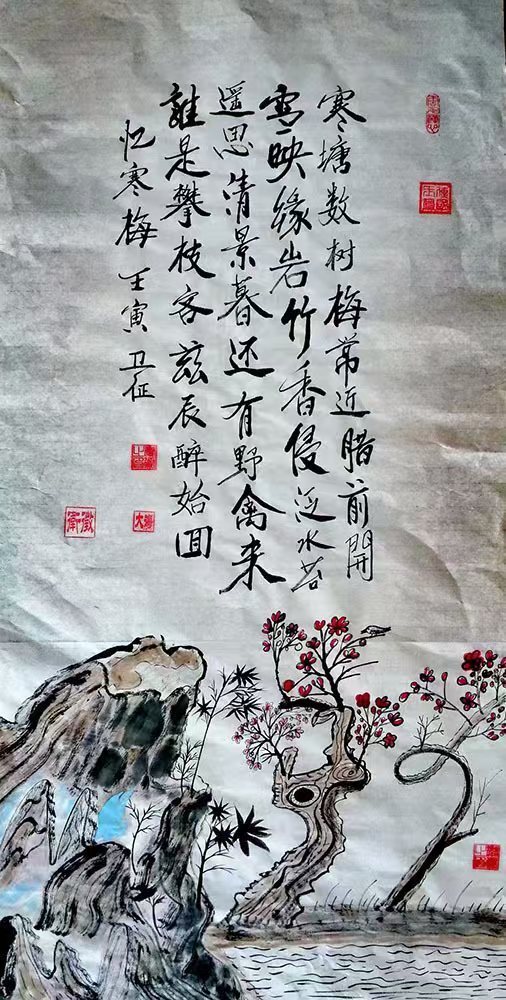 寒塘数树梅常近腊前開
雪映缘岩竹香侵泛水苔
遥思清景暮还有野禽来
誰是攀枝客兹辰醉始回
忆寒梅 壬寅 卫征